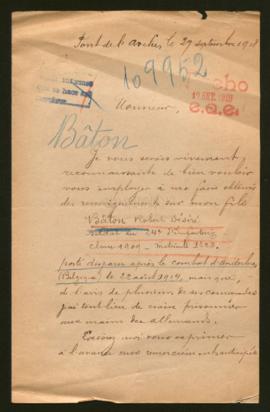 Pont de l'arches le 29 septembre 191
109952
echo
e.a.e.
Monsieur,
Bâton
Je vous serais vivement
reconnaissante de bien vouloir
vous employer à me faire obtenir
des renseignements sur mon fils
Bâton Robert Désiré
soldat au 24e d'Infanterie
classe 1909 - matricule
porté disparu après le combat d'
(Belgique) le 22 août 1914, mais qui,
de l'avis de plusieurs de ses camarades
a tout lieu de croire prisonnier
aux mains des allemands.
Excusez moi vous exprimer
à l'avance mes remerciements anticipés